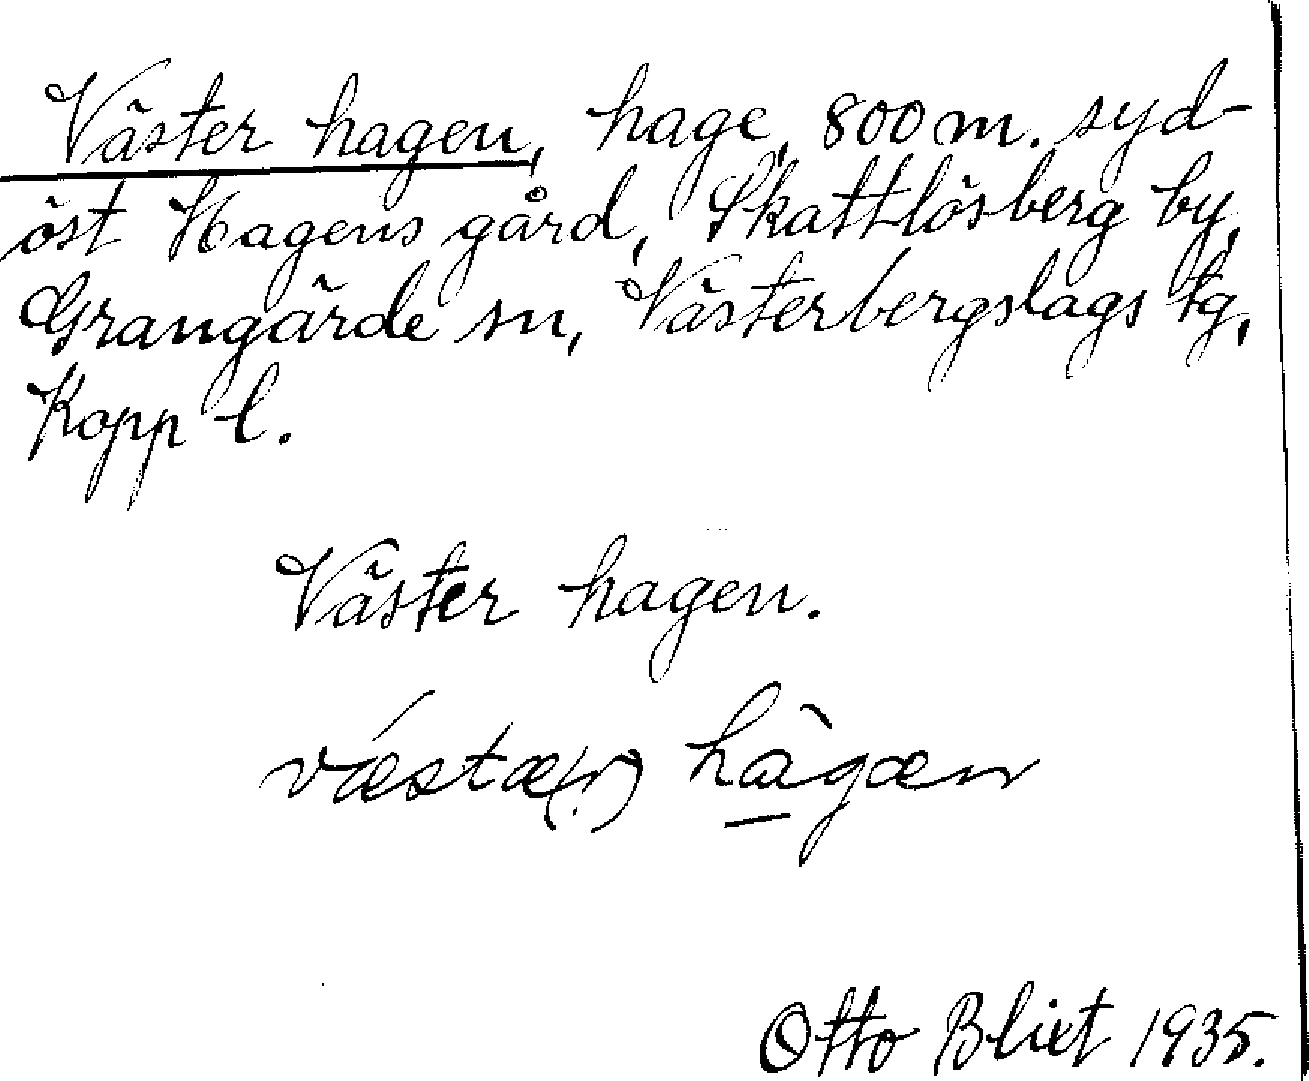 Väster hagen, hage, 800 m. syd-
öst Hagens gård, Skattlösberg by,
Grangärde sn, Västerbergslags tg,
Kopp l.
Väster hagen.
væ´stæ(r) hàgæn
Otto Blixt 1935.